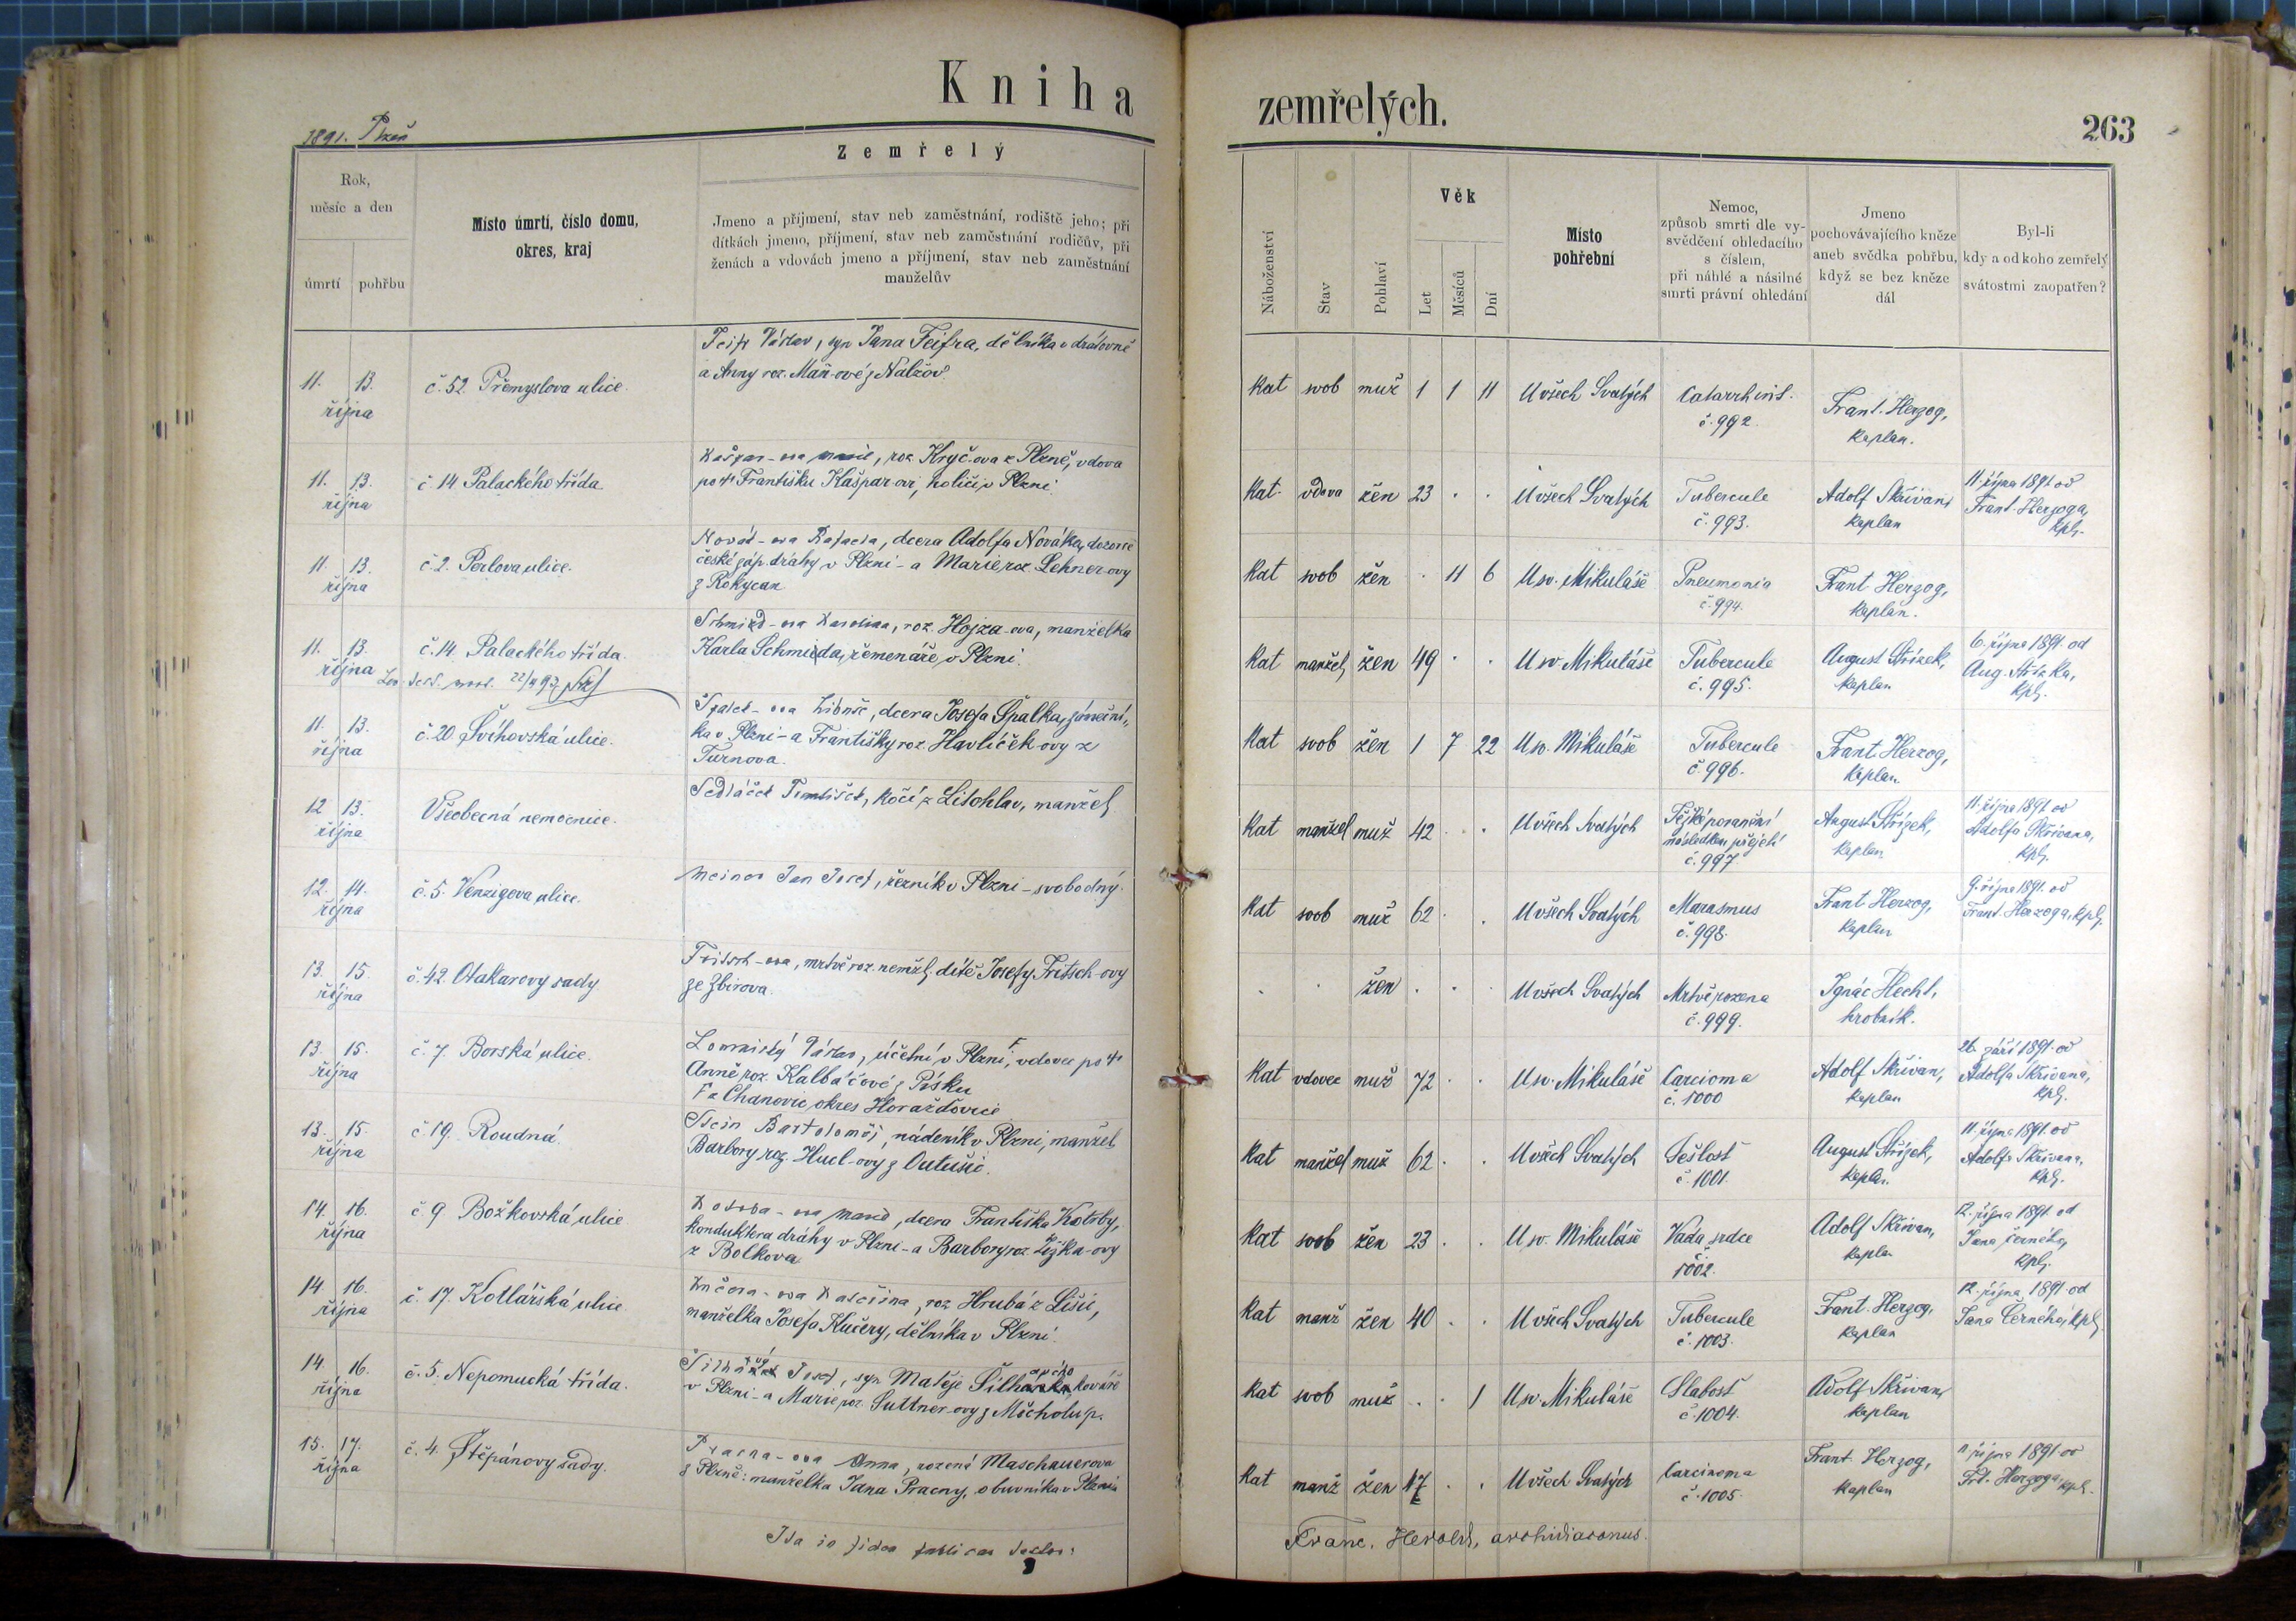 Kniha
zemřelých.
1891. Plzeň
263
Zemřelý
Rok,
měsíc a den
úmrtí
pohřbu
Místo úmrtí, číslo domu,
okres, kraj
Jmeno a příjmení, stav neb zaměstnání, rodiště jeho; při
dítkách jmeno, příjmení, stav neb zaměstnání rodičův, při
ženách a vdovách jmeno a příjmení, stav neb zaměstnání
manželův
Náboženství
Stav
Pohlaví
Věk
Let
Měsíců
Dní
Místo
pohřební
Nemoc,
způsob smrti dle vy-
svědčení ohledacího
s číslem,
při náhlé a násilné
smrti právní ohledání
Jmeno
pochovávajícího kněze
aneb svědka pohřbu,
když se bez kněze
dál
Byl-li
kdy a od koho zemřelý
svátostmi zaopatřen?
11. 13.
října
č. 52. Přemyslova ulice.
Feifr Václav, syn Jana Feifra, dělníka v drátovně
a Anny roz. Maň-ové z Nalžov
Kat svob muž 1 1 11 U všech Svatých
č. 992.
Frant. Herzog,
kaplan.
11. 13.
října
č. 14. Palackého třída
Kašpar-ova Marie, roz. Kryč-ova z Plzně, vdova
po † Františku Kašparovi, holiči v Plzni.
Kat. vdova žen 23 . . U všech Svatých
Tubercule
č. 993.
Adolf Skřivan,
kaplan
11. října 1891 od
Frant. Herzoga,
kpl.
11. 13.
října
č. 2. Perlova ulice.
Novák-ova Barbora, dcera Adolfa Nováka, dozorce
české záp. dráhy v Plzni - a Marie, roz. Lehner-ovy
z Rokycan
Kat svob žen . 11 6 U sv. Mikuláše
Pneumonia
č. 994.
Frant. Herzog,
kaplan.
11. 13.
října
č. 14. Palackého třída.
Schmied-ova Karolina, roz. Hojza-ova, manželka
Karla Schmieda, řemenáře v Plzni.
Kat manžel. žen 49 . . U sv. Mikuláše
Tubercule
č. 995.
August Střízek,
kaplan
6. října 1891 od
Aug. Střízka,
kpl.
11. 13.
října
č. 20. Švihovská ulice.
Špalek-ova Libuše, dcera Josefa Špalka, zámeční-
ka v Plzni - a Františky roz. Havlíček-ovy z
Turnova.
Kat svob žen 1 7 22 U sv. Mikuláše
Tubercule
č. 996.
Frant. Herzog,
kaplan.
12 13.
října
Všeobecná nemocnice.
Sedláček František, kočí z Litohlav, manžel
Kat manžel muž 42 . . U všech Svatých
Těžké poranění
následkem přejetí
č. 997.
August Střízek,
kaplan
11. října 1891 od
Adolfa Skřivana,
kpl.
12. 14.
října
č. 5. Venzigova ulice.
Jan Josef, řezník v Plzni - svobodný.
Kat svob muž 62 . . U všech Svatých
Marasmus
č. 998.
Frant Herzog,
kaplan
9. října 1891. od
Frant. Herzoga, kpl.
13. 15.
října
č. 42. Otakarovy sady
Fritsch-ova, mrtvě roz. nemžl. dítě Josefy Fritsch-ovy
ze Zbirova.
. . žen . . . U všech Svatých
Mrtvě rozena
č. 999.
Ignác Hecht,
hrobník.
13. 15.
října
č. 7. Borská ulice.
Lomnický Václav, účetní v Plzni, vdovec po †
Anně roz. Kalbáčové z Písku
z Chanovic, okres Horažďovice
Kat vdovec muž 72 . . U sv. Mikuláše
Carcioma
č. 1000
Adolf Skřivan,
kaplan
26. září 1891. od
Adolfa Skřivana,
kpl.
13. 15.
října
č. 19. Roudná.
Stein Bartoloměj, nádeník v Plzni, manžel
Barbory roz. Hucl-ovy z Outušic.
Kat manžel muž 62 . . U všech Svatých
Sešlost
č. 1001.
August Střízek,
kaplan
11. října 1891. od
Adolfa Skřivana,
kpl.
14. 16.
října
č. 9. Božkovská ulice
Kotrba-ova Marie, dcera Františka Kotrby,
konduktera dráhy v Plzni - a Barbory roz. Žižka-ovy
z Bolkova
Kat svob žen 23 . . U sv. Mikuláše
Vada srdce
č.
1002.
Adolf Skřivan,
kaplan
12. října 1891. od
Jana Černého,
kpl.
14. 16.
října
č. 17. Kotlářská ulice
Kučera-ova Kateřina, roz. Hrubá z Lišic,
manželka Josefa Kučery, dělníka v Plzni.
Kat manž žen 40 . . U všech Svatých
Tubercule
č. 1003.
Frant. Herzog,
kaplan
12. října 1891 od
Jana Černého, kpl.
14. 16.
října
č. 5. Nepomucká třída.
Josef, syn Matěje kováře
v Plzni - a Marie, roz. Suttner-ovy z Mecholup.
Kat svob muž . . 1 U sv. Mikuláše
Slabost
č. 1004.
Adolf Skřivan,
kaplan
15. 17.
října
č. 4. Štěpánovy sady.
Pracna-ova Anna, rozená Maschauerova
z Plzně: manželka Jana Pracny, obuvníka v Plzni
Kat manž žen 47 . . U všech Svatých
Carcinoma
č. 1005.
Frant. Herzog,
kaplan
11. října 1891 od
Frt. Herzoga, kpl.
Ita in fidem publicam testor:
Franc. Herold, archidiaconus.